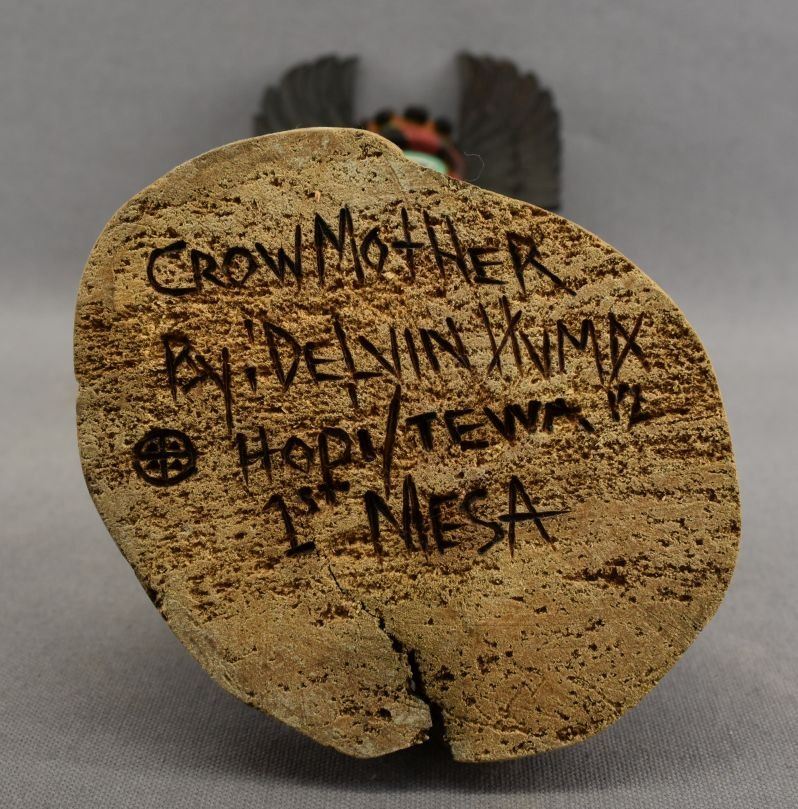 CROW MOTHER
By: DELVIN HUMA
HOPI/TEWA 12
1st MESA